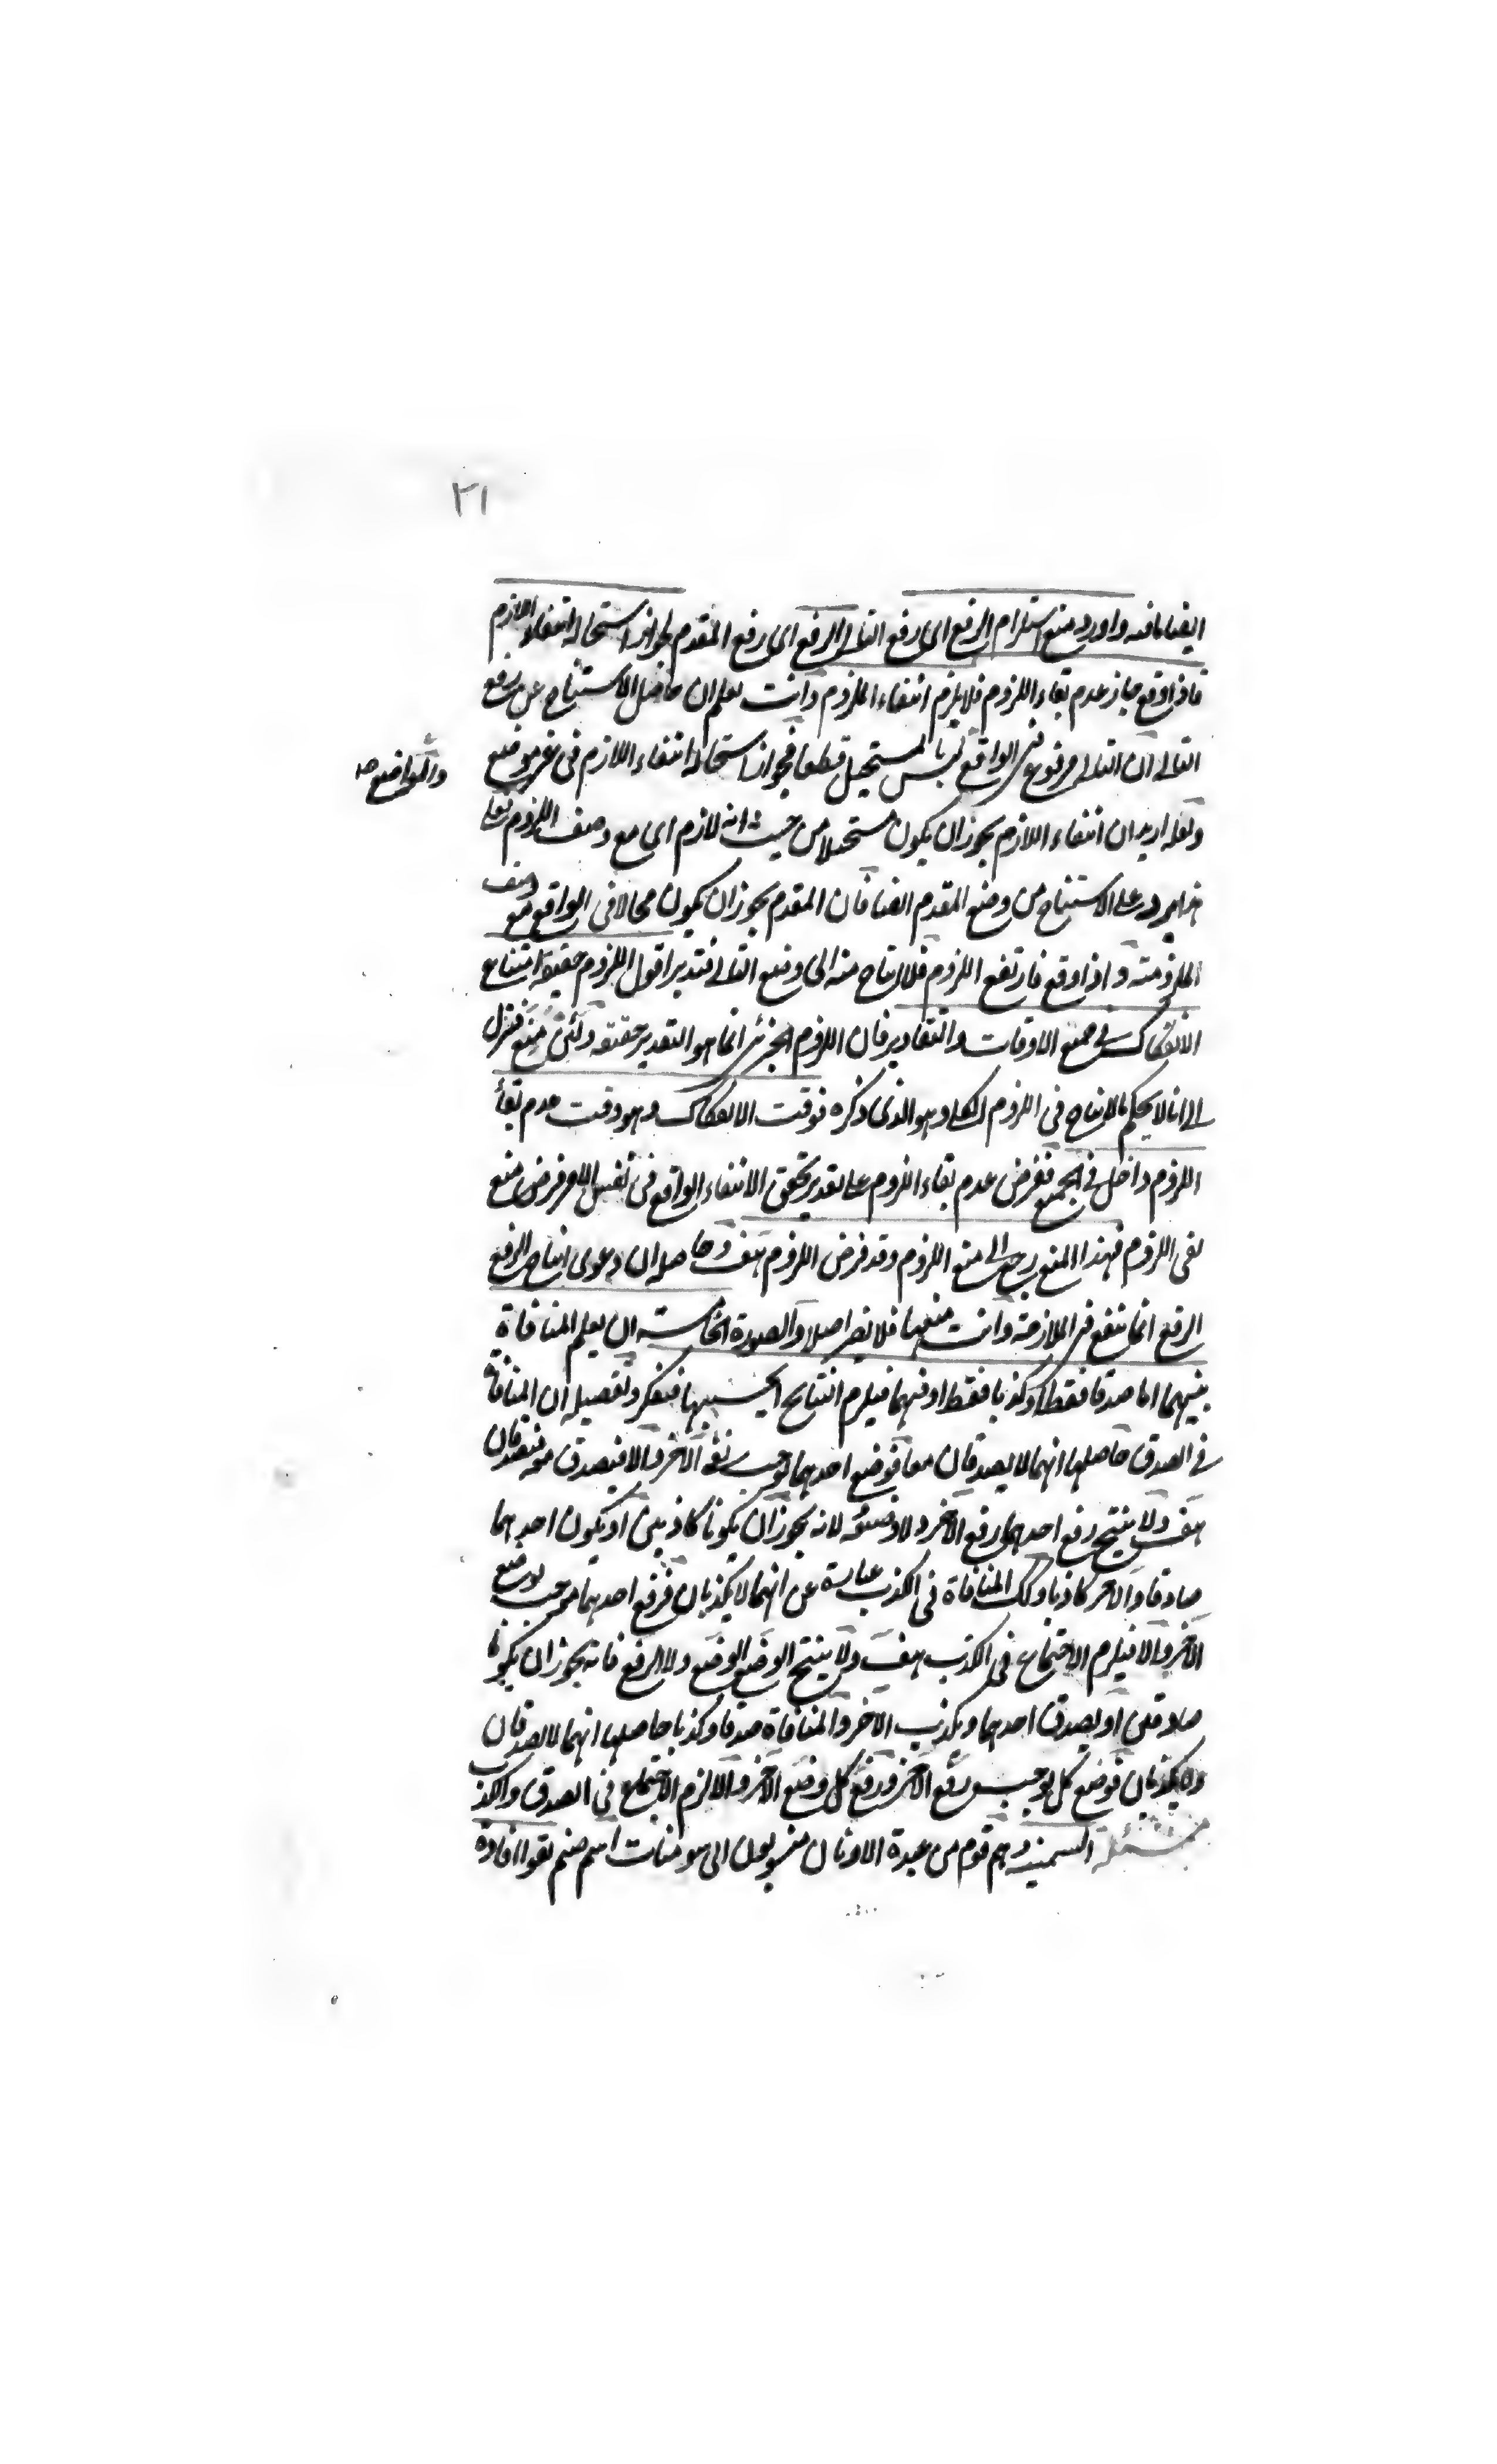 ٢١
ايضا فافهم واورد منع استلزام الرفع اى رفع التالى الرفع اى رفع المقدم لجواز استحالة انتفاء اللازم
فاذا وقع جاز عدم بقاء اللزوم فلا يلزم انتفاء الملزوم وانت تعلم ان حاصل الاستنتاج عن رفع
التالى ان التالى مرفوع فى الواقع ليس بالمستحيل قطعا فجواز استحالة انتفاء اللازم فى غير موضع
والمواضع صـ
ولعله اريد ان انتفاء اللازم يجوز ان يكون مستحيلا من حيث انه لازم اى مع وصف اللزوم فعلى
هذا يرد على الاستنتاج من وضع المقدم ايضا فان المقدم يجوز ان يكون محالا فى الواقع مع وصف
الملزومية واذا وقع فارتفع اللزوم فلا انتاج منه الى وضع التالى فتدبر اقول اللزوم حقيقة امتناع
الانفكاك فى جميع الاوقات والتقادير فان اللزوم الجزئى انما هو التقدير حقيقة ولئن منع فننزل
الى انا لا نحكم بالانتاج فى اللزوم الكلى وهو الذى ذكره فوقت الانفكاك وهو وقت عدم بقاء
اللزوم داخل فى الجميع ففرض عدم بقاء اللزوم على تقدير تحقق الانتفاء الواقع فى نفس الامر فرض منع
نفى اللزوم فهذا المنع يرجع الى منع اللزوم وقد فرض اللزوم هف وحاصله ان دعوى انتاج الرفع
الرفع انما ينفع فى الملازمة وانت منعتها فلا يضر اصلا والصورة الخامسة ان يعلم المنافاة
بينهما اما صدقا فقط او كذبا فقط او فيهما فيلزم النتايج بحسبها فتفكر وتفصيله ان المنافاة
فى الصدق حاصلها انهما لا يصدقان معا فوضع احدهما يوجب رفع الآخر والا فيصدق معه فيصدقان
هف ولا ينتج رفع احدهما رفع الآخر ولا وضعه لانه يجوز ان يكونا كاذبين او يكون احدهما
صادقا والآخر كاذبا وكك المنافاة فى الكذب عبارة عن انهما لا يكذبان فرفع احدهما موجب لوضع
الآخر والا فيلزم الاجتماع فى الكذب هف ولا ينتج الوضع الوضع ولا الرفع فانه يجوز ان يكونا
صادقين او يصدق احدهما ويكذب الآخر والمنافاة صدقا وكذبا حاصلها انهما لا يصدقان
ولا يكذبان فوضع كل يوجب رفع الآخر ورفع كل وضع الآخر والا لزم الاجتماع فى الصدق والكذب
مسئلة السمنية وهم قوم من عبدة الاوثان منسوبون الى سومنات اسم صنم نفوا افادة